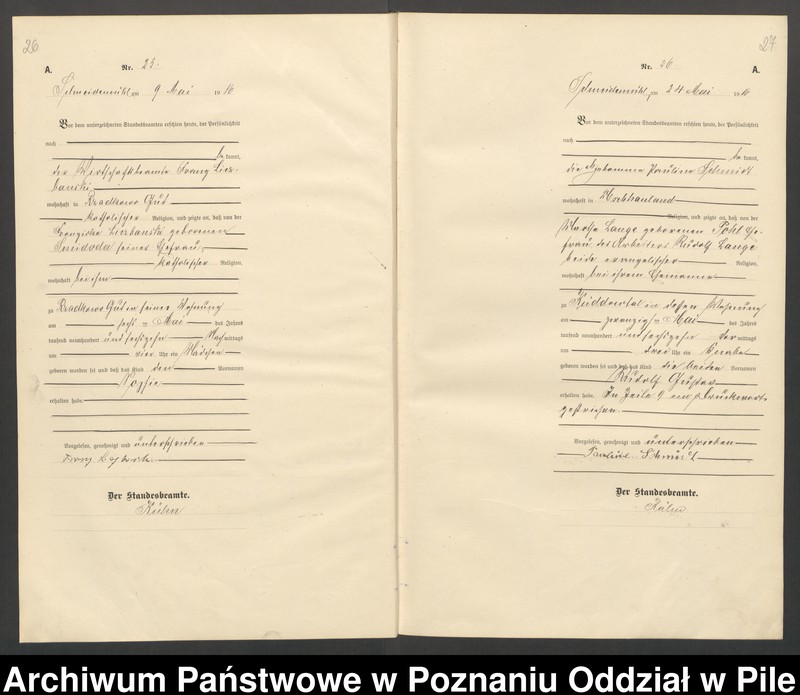 26
A.
Nr. 25.
Schneidemühl, am 9 Mai 1916
Vor dem unterzeichneten Standesbeamten erschien heute, der Persönlichkeit
nach
be kannt,
der Wirtschaftsbeamte Franz
wohnhaft in Bradtkowo Gut
katholischer Religion, und zeigte an, daß von der
Franziska geborenen
seiner Ehefrau
katholischer Religion,
wohnhaft bei ihm
zu Gut in seiner Wohnung
am sech ten Mai des Jahres
tausend neunhundert und sechzehn Nach mittags
um vier Uhr ein Mädchen
geboren worden sei und daß das Kind den Vornamen
Sophie
erhalten habe.
Vorgelesen, genehmigt und unterschrieben
Der Standesbeamte.
27
Nr. 26
A.
Schneidemühl, am 24 Mai 1916
Vor dem unterzeichneten Standesbeamten erschien heute, der Persönlichkeit
nach
be kannt,
die Hebamme Pauline Schmidt
wohnhaft in
Religion, und zeigte an, daß von der
Martha Lange geborenen Pohl Ehe-
frau des Arbeiters Rudolf Lange
beide evangelischer Religion,
wohnhaft bei ihrem Ehemanne
zu Küddowtal in dessen Wohnung
am zwanzig ten Mai des Jahres
tausend neunhundert und sechzehn Vor mittags
um drei Uhr ein Knabe
geboren worden sei und daß das Kind die beiden Vornamen
Rudolf Gustav
erhalten habe. In Zeile 9 ein Druckwort
gestrichen.
Vorgelesen, genehmigt und unterschrieben
Pauline Schmidt
Der Standesbeamte.
Archiwum Państwowe w Poznaniu Oddział w Pile